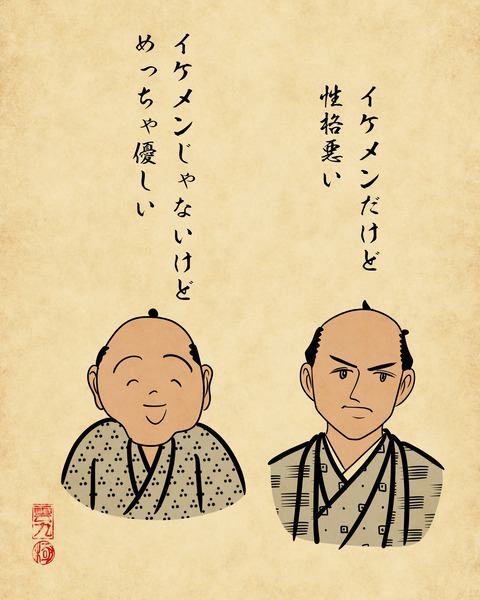 イケメンだけど
性格悪い
イケメンじゃないけど
めっちゃ優しい